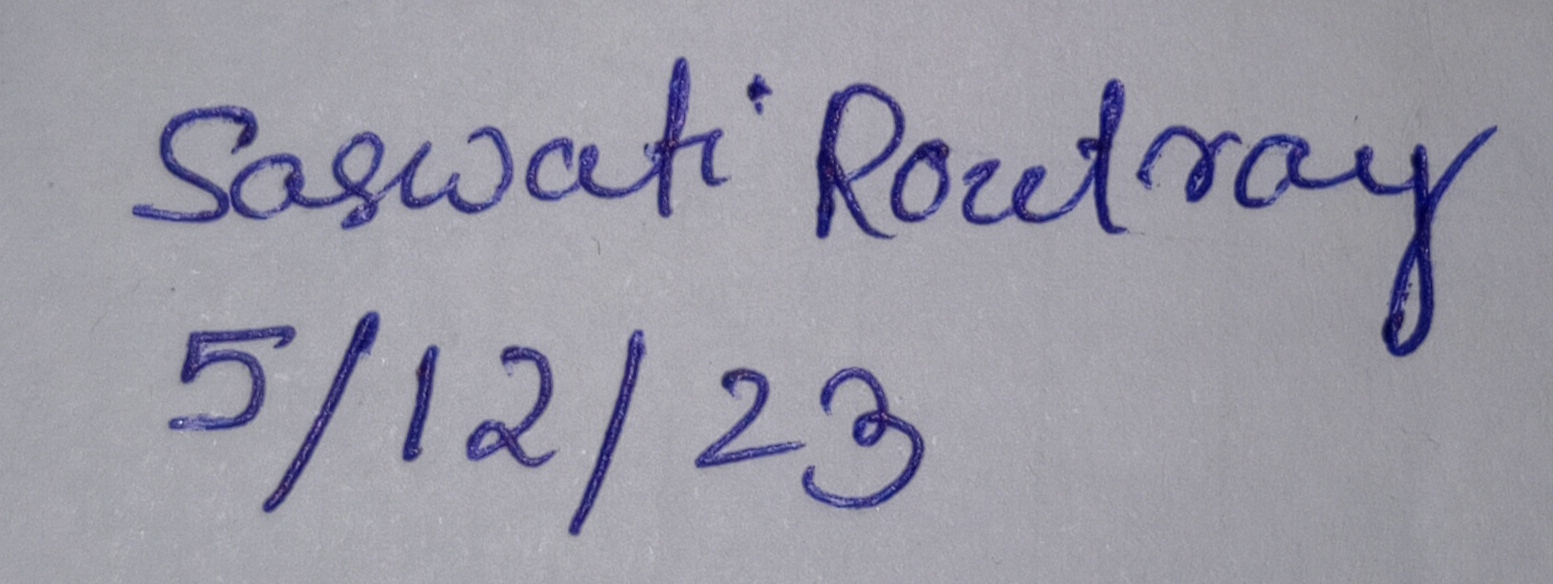 Saswati Routray
5/12/23